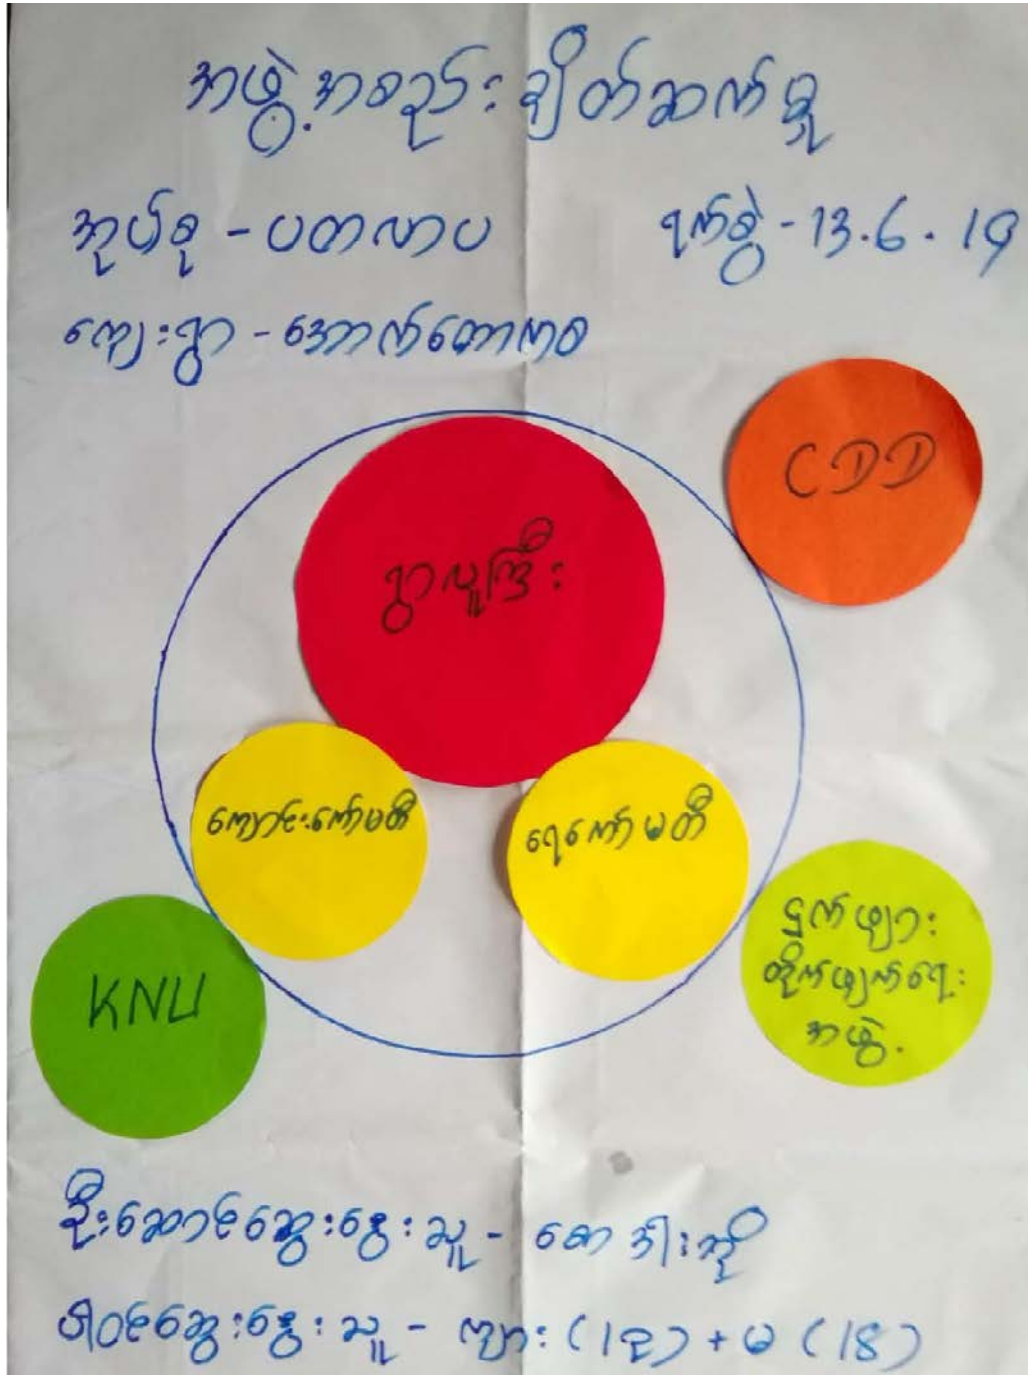 အဖွဲ့အစည်းချိတ်ဆက်မှု
အုပ်စု - ပတလာပ ရက်စွဲ - 13.6.19
ကျေးရွာ - အောက်တောကစ
CDD
ရွာလူကြီး
ကျောင်းကော်မတီ
ရေကော်မတီ
KNU
ငှက်ဖျား
တိုက်ဖျက်ရေး
အဖွဲ့
ဦးဆောင်ဆွေးနွေးသူ -
ပါဝင်ဆွေးနွေးသူ - ကျား (12) + မ (18)